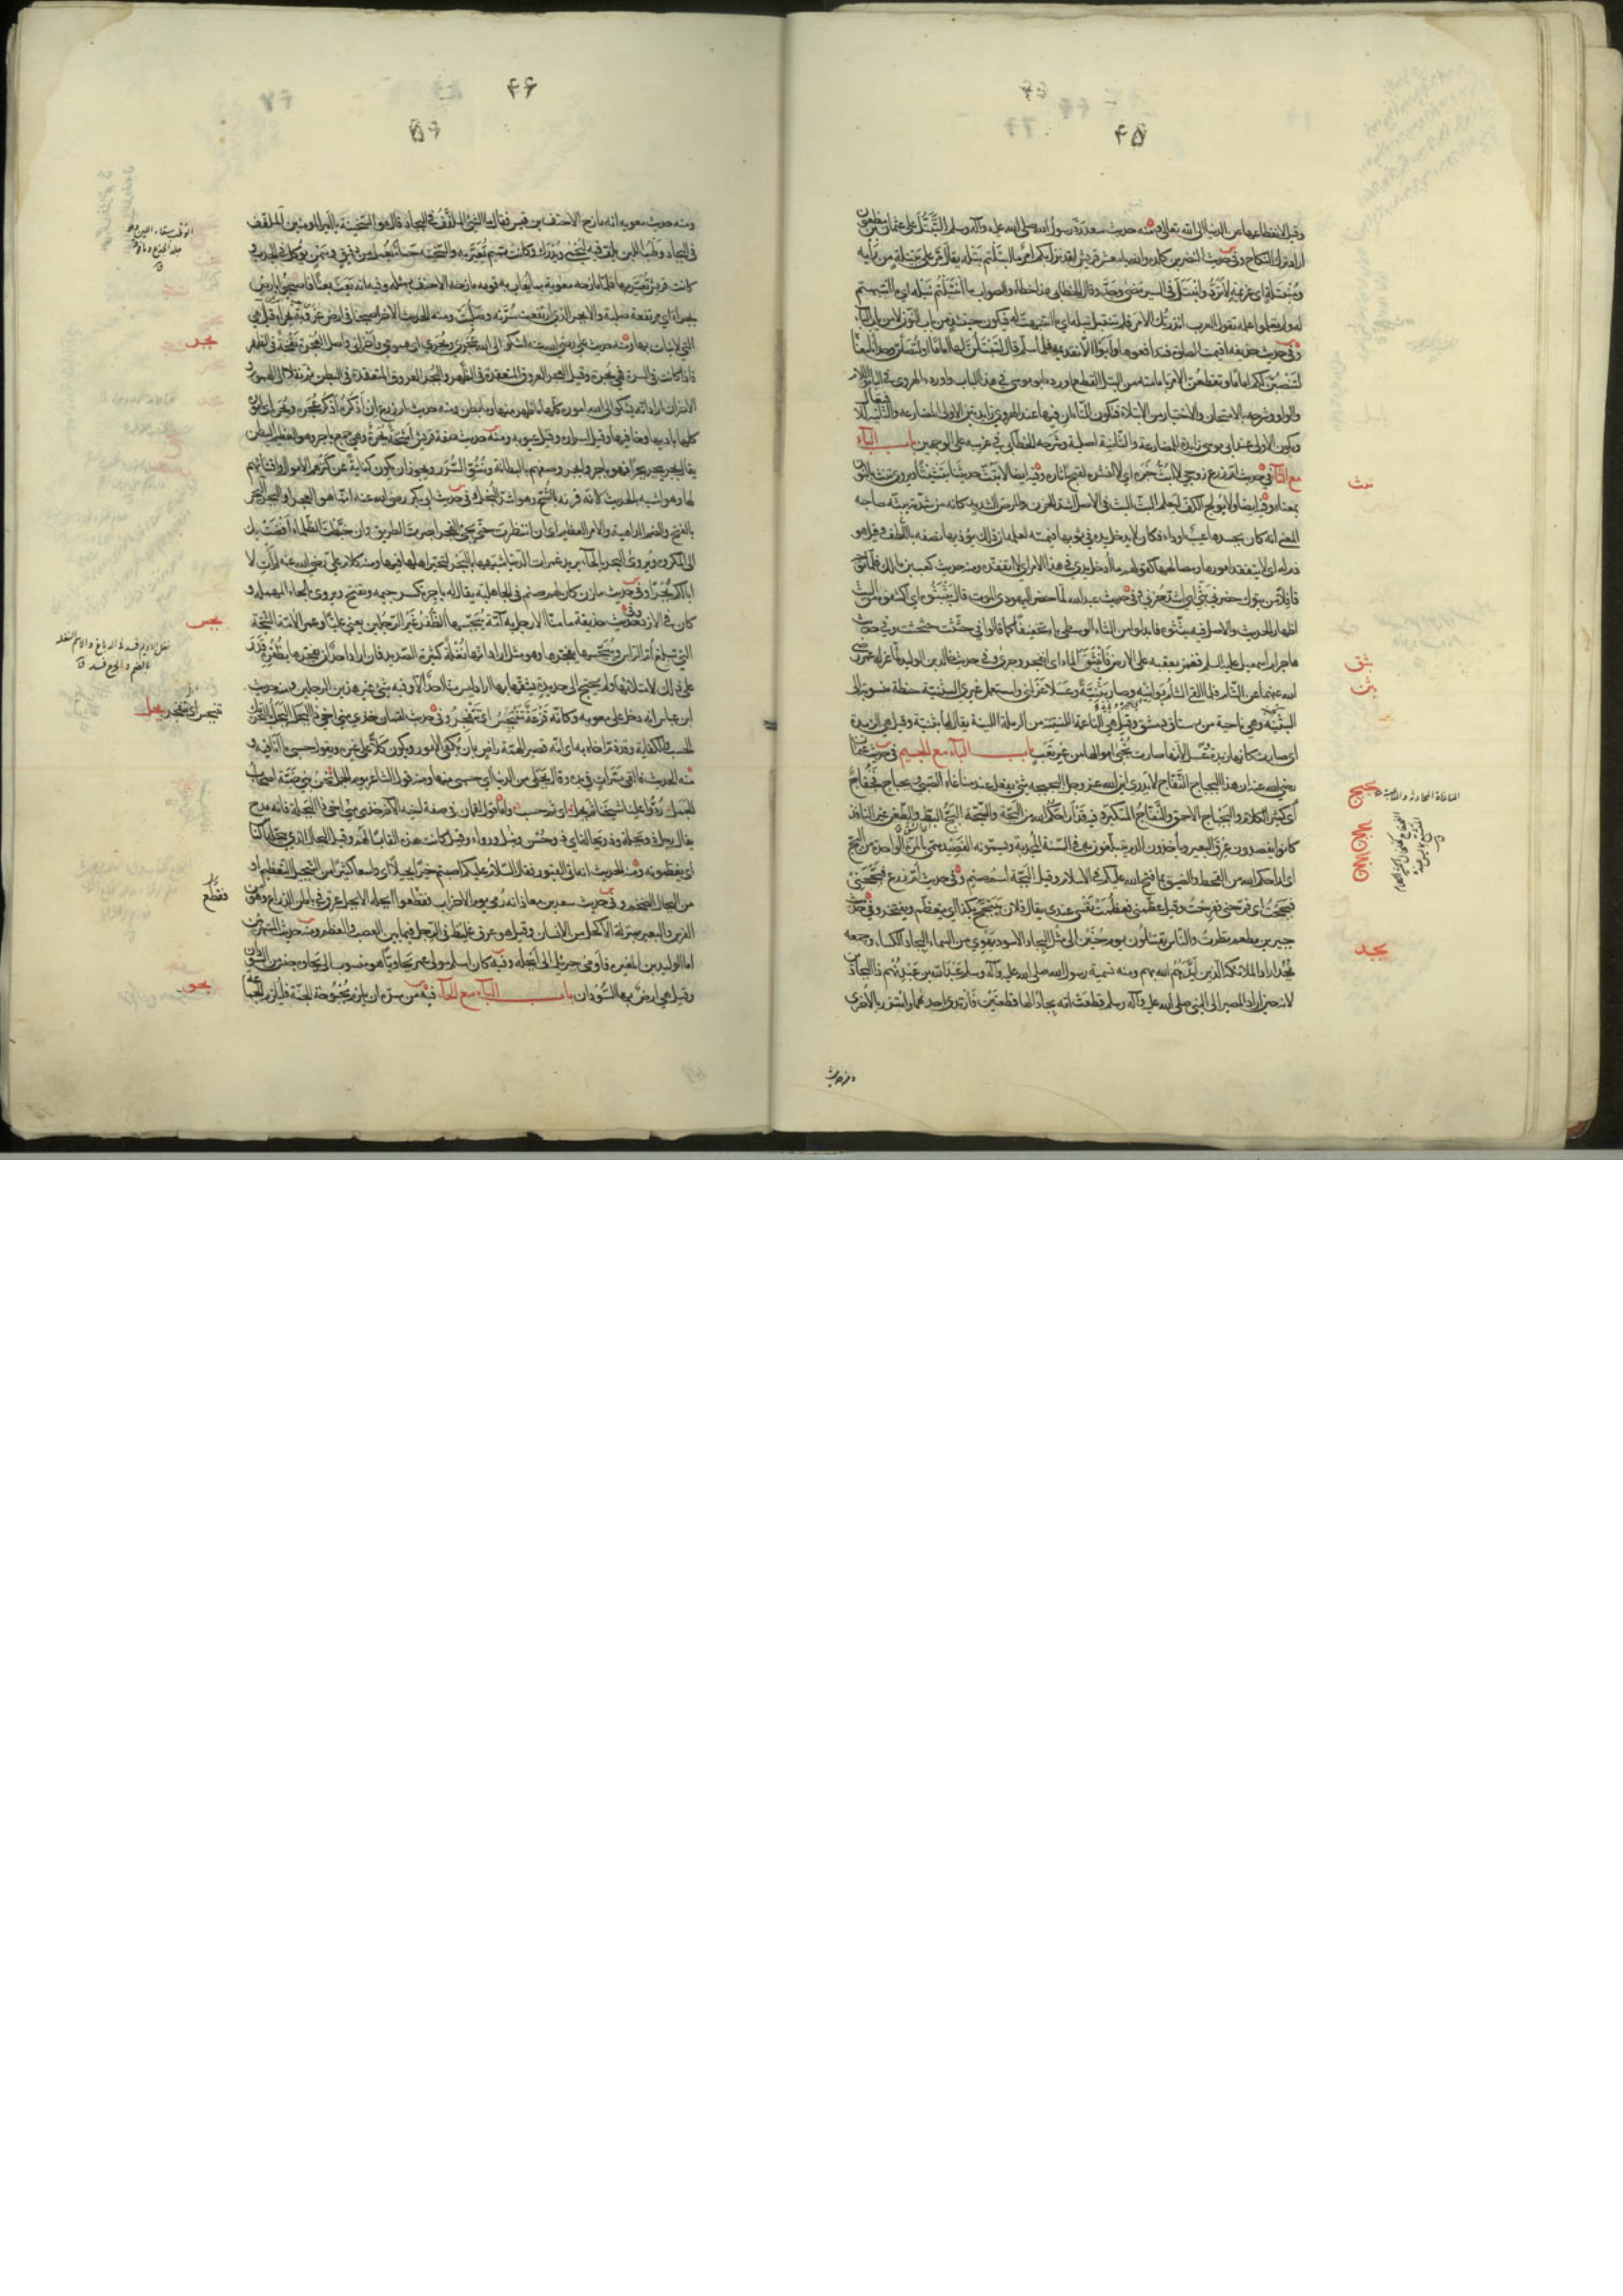 ۴۵
وقيل لانقطاعها عن الدنيا الى الله تعالى ومنه حديث سعد رد رسول الله صلى الله عليه وآله وسلم التبتل على عثمان بن مظعون
اراد ترك النكاح وفي حديث النضر بن كلدة والله يا معشر قريش لقد نزل بكم امر ما ابتلتم بتله يقال مر على بتيلة من رأيه
ومنبتلة اي عزيمة لا ترد وانبتل في السير مضى وجد وقال الخطابي هذا خطاء والصواب ما انتبلتم نبله اي ما انتبهتم
له ولم تعلموا علمه تقول العرب انذرتك الامر فلم تنتبل نبله اي ما انتبهت له فيكون حينئذ من باب النون لا من باب الباء
وفي حديث حذيفة اقيمت الصلوة فتدافعوها وابوا الا تقديمه فلما سلم قال لتبتلن لها اماما او لتصلن وحدانا معناه
لتنصبن لكم اماما وتقطعن الامر بامامته من البتل القطع اورده ابو موسى في هذا الباب واورده الهروي في باب الباء واللام
والواو وشرحه بالامتحان والاختبار من الابتلاء فتكون التاءان فيها عند الهروي زايدتين الاولى للمضارعة والثانية للافتعال
وتكون الاولى عند ابي موسى زايدة للمضارعة والثانية اصلية وشرحه الخطابي في غريبه على الوجهين باب الباء
مع الثاء في حديث ام زرع زوجي لا ابث خبره اي لا انشره لقبح اثاره وفيه ايضا لا تبث حديثنا تبثيثا ويروى تنث بالنون
بمعناه وفيه ايضا ولا يولج الكف ليعلم البث البث في الاصل اشد الحزن والمرض الشديد كانه من شدته يبثه صاحبه
المعنى انه كان بجسدها عيب او داء فكان لا يدخل يده في ثوبها فيمسه لعلمه ان ذلك يؤذيها تصفه باللطف وقيل هو
ذم له اي لا يتفقد امورها ومصالحها كقولهم ما ادخل يدي في هذا الامر اي لا اتفقده ومنه حديث كعب بن مالك فلما توجه
قافلا من تبوك حضرني بثي اي اشتد حزني وفي حديث عبد الله لما حضر اليهودي الموت قال بثبثوه اي اكشفوه من البث
اظهار الحديث والاصل فيه بثثوه فابدلوا من الثاء الوسطى باء تخفيفا كما قالوا في حثثت حثحثت وفي حديث
هاجر ام اسمعيل عليه السلم فغمز بعقبه على الارض فانبثق الماء اي انفجر وجرى وفي حديث خالد بن الوليد لما عزله عمر رضي
الله عنهما عن الشام فلما القى الشام بوانيه وصار بثنية وعسلا عزلني واستعمل غيري البثنية حنطة منسوبة الى
البثنة وهي ناحية من رستاق دمشق وقيل هي الناعمة اللينة من الرملة اللينة يقال لها بثنة وقيل هي الزبدة
اي صارت كانها زبدة وعسل لانها صارت تجبى اموالها من غير تعب باب الباء مع الجيم في حديث عثمان
رضي الله عنه ان هذا البجباج النفاج لا يدري اين الله عز وجل البجبجة شيء يفعل عند مناغاة الصبي وبجباج نفاج
اي كثير الكلام والبجباج الاحمق والنفاج المتكبر وفيه قد اراحكم الله من البجة والسجة البج البط والطعن غير النافذ
كانوا يفصدون عرق البعير وياخذون الدم يتبلغون به في السنة المجدبة ويسمونه الفصيد سمي بالمرة الواحدة من البج
اي اراحكم الله من القحط والضيق بما فتح الله عليكم في الاسلام وقيل البجة اسم صنم وفي حديث ام زرع وبجحني
فبجحت اي فرحني ففرحت وقيل عظمني فعظمت نفسي عندي يقال فلان يتبجح بكذا اي يتعظم ويفتخر وفي حديث
جبير بن مطعم نظرت والناس يقتتلون يوم حنين الى مثل البجاد الاسود يهوي من السماء البجاد الكساء وجمعه
بجد اراد الملائكة الذين ايدهم الله بهم ومنه تسمية رسول الله صلى الله عليه وآله وسلم عبد الله بن عبد نهم ذا البجادين
لانه حين اراد المصير الى النبي صلى الله عليه وآله وسلم قطعت امه بجادا لها قطعتين فارتدى احدهما وائتزر بالاخرى
بثث
بثق
بثن
بجج
بجح
بجد
ومنه حديث
۴۶
ومنه حديث معوية انه مازح الاحنف بن قيس فقال ما الشيء الملفف في البجاد قال هو السخينة يا امير المؤمنين الملفف
في البجاد وطب اللبن يلف فيه ليحمى ويدرك وكانت تميم تعير به والسخينة حساء يعمل من دقيق وسمن يؤكل في الجدب و
كانت قريش تعير بها فلما مازحه معوية بما يعاب به قومه مازحه الاحنف بمثله وفيه انه بعث بعثا فاصبحوا بارض
بجراء اي مرتفعة صلبة والابجر الذي ارتفعت سرته وصلبت ومنه الحديث الاخر اصبحنا في ارض عزوبة بجراء وقيل هي
التي لا نبات بها ومنه حديث علي رضي الله عنه اشكو الى الله عجري وبجري اي همومي واحزاني واصل العجرة نفخة في الظهر
فاذا كانت في السرة فهي بجرة وقيل العجر العروق المتعقدة في الظهر والبجر العروق المتعقدة في البطن ثم نقلا الى الهموم و
الاحزان اراد انه يشكو الى الله اموره كلها ما ظهر منها وما بطن ومنه حديث ام زرع ان اذكره اذكر عجره وبجره اي اموره
كلها باديها وخافيها وقيل اسراره وقيل عيوبه ومنه حديث صفة قريش اشحة بجرة وهي جمع باجر وهو العظيم البطن
يقال بجر يبجر بجرا فهو باجر وابجر وصفهم بالبطانة ونتو السرر ويجوز ان يكون كناية عن كنزهم الاموال واقتنائهم
لها وهو اشبه بالحديث لانه قرنه بالشح وهو اشد البخل وفي حديث ابي بكر رضي الله عنه انما هو الفجر او البجر البجر
بالفتح والضم الداهية والامر العظيم اي ان انتظرت حتى يضيء الفجر ابصرت الطريق وان خبطت الظلماء افضت بك
الى المكروه ويروى البحر بالحاء يريد غمرات الدنيا شبهها بالبحر لتحير اهلها فيها ومنه كلام علي رضي الله عنه لم آت لا
ابا لكم بجرا وفي حديث مازن كان لهم صنم في الجاهلية يقال له باجر تكسر جيمه وتفتح ويروى بالحاء المهملة و
كان في الازد وفي حديث حذيفة ما منا الا رجل به آمة يبجسها الظفر غير الرجلين يعني عليا وعمر الآمة الشجة
التي تبلغ ام الراس ويبجسها يفجرها وهو مثل اراد انها نغلة كثيرة الصديد فان اراد احد ان يفجرها بظفره قدر
على ذلك لامتلائها ولم يحتج الى حديدة يشقها بها اراد ليس منا احد الا وفيه شيء غير هذين الرجلين ومنه حديث
ابن عباس انه دخل على معوية وكانه قزعة تتبجس اي تنفجر وفي حديث لقمان خذي مني اخي ذا البجل البجل بالتحريك
الحسب والكفاية وقد ذم اخاه به اي انه قصير الهمة راض بان يكفى الامور ويكون كلا على غيره ويقول حسبي ما انا فيه و
منه الحديث فالقى تمرات في يده وقال بجلي من الدنيا اي حسبي منها ومنه قول الشاعر يوم الجمل نحن بني ضبة اصحاب
الجمل ردوا علينا شيخنا ثم بجل اي ثم حسب واما قول لقمان في صفة اخيه الاخر خذي مني اخي ذا البجلة فانه مدح
يقال رجل ذو بجلة وذو بجالة اي ذو حسن ونبل ورواء وقيل كانت هذه القابا لهم وقيل البجال الذي يبجله الناس
اي يعظمونه ومنه الحديث انه اتى القبور فقال السلام عليكم اصبتم خيرا بجيلا اي واسعا كثيرا من التبجيل التعظيم او
من البجال الضخم وفي حديث سعد بن معاذ انه رمي يوم الاحزاب فقطعوا ابجله الابجل عرق في باطن الذراع وهو من
الفرس والبعير بمنزلة الاكحل من الانسان وقيل هو عرق غليظ في الرجل فيما بين العصب والعظم ومنه حديث المستهزئين
اما الوليد بن المغيرة فاومى جبريل الى ابجله وفيه كان اسلم مولى عمر بجاويا هو منسوب الى بجاوة جنس من السودان
وقيل هي ارض بها السودان باب الباء مع الحاء فيه من سره ان يلزم بحبوحة الجنة فليلزم الجماعة
بجر
بجس
نغل الاديم فسد في الدباغ والاسم النغلة
بالضم والجرح فسد ق
بجل
بجو